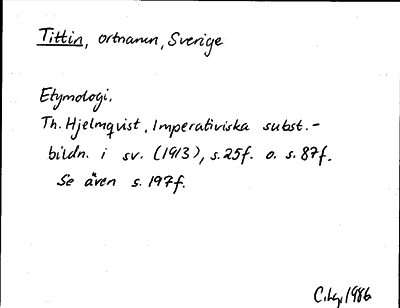 Tittin, ortnamn, Sverige
Etymologi.
Th. Hjelmqvist, Imperativiska subst.-
bildn. i sv. (1913), s. 25f. o. s. 87f.
Se även s. 197f.
1986